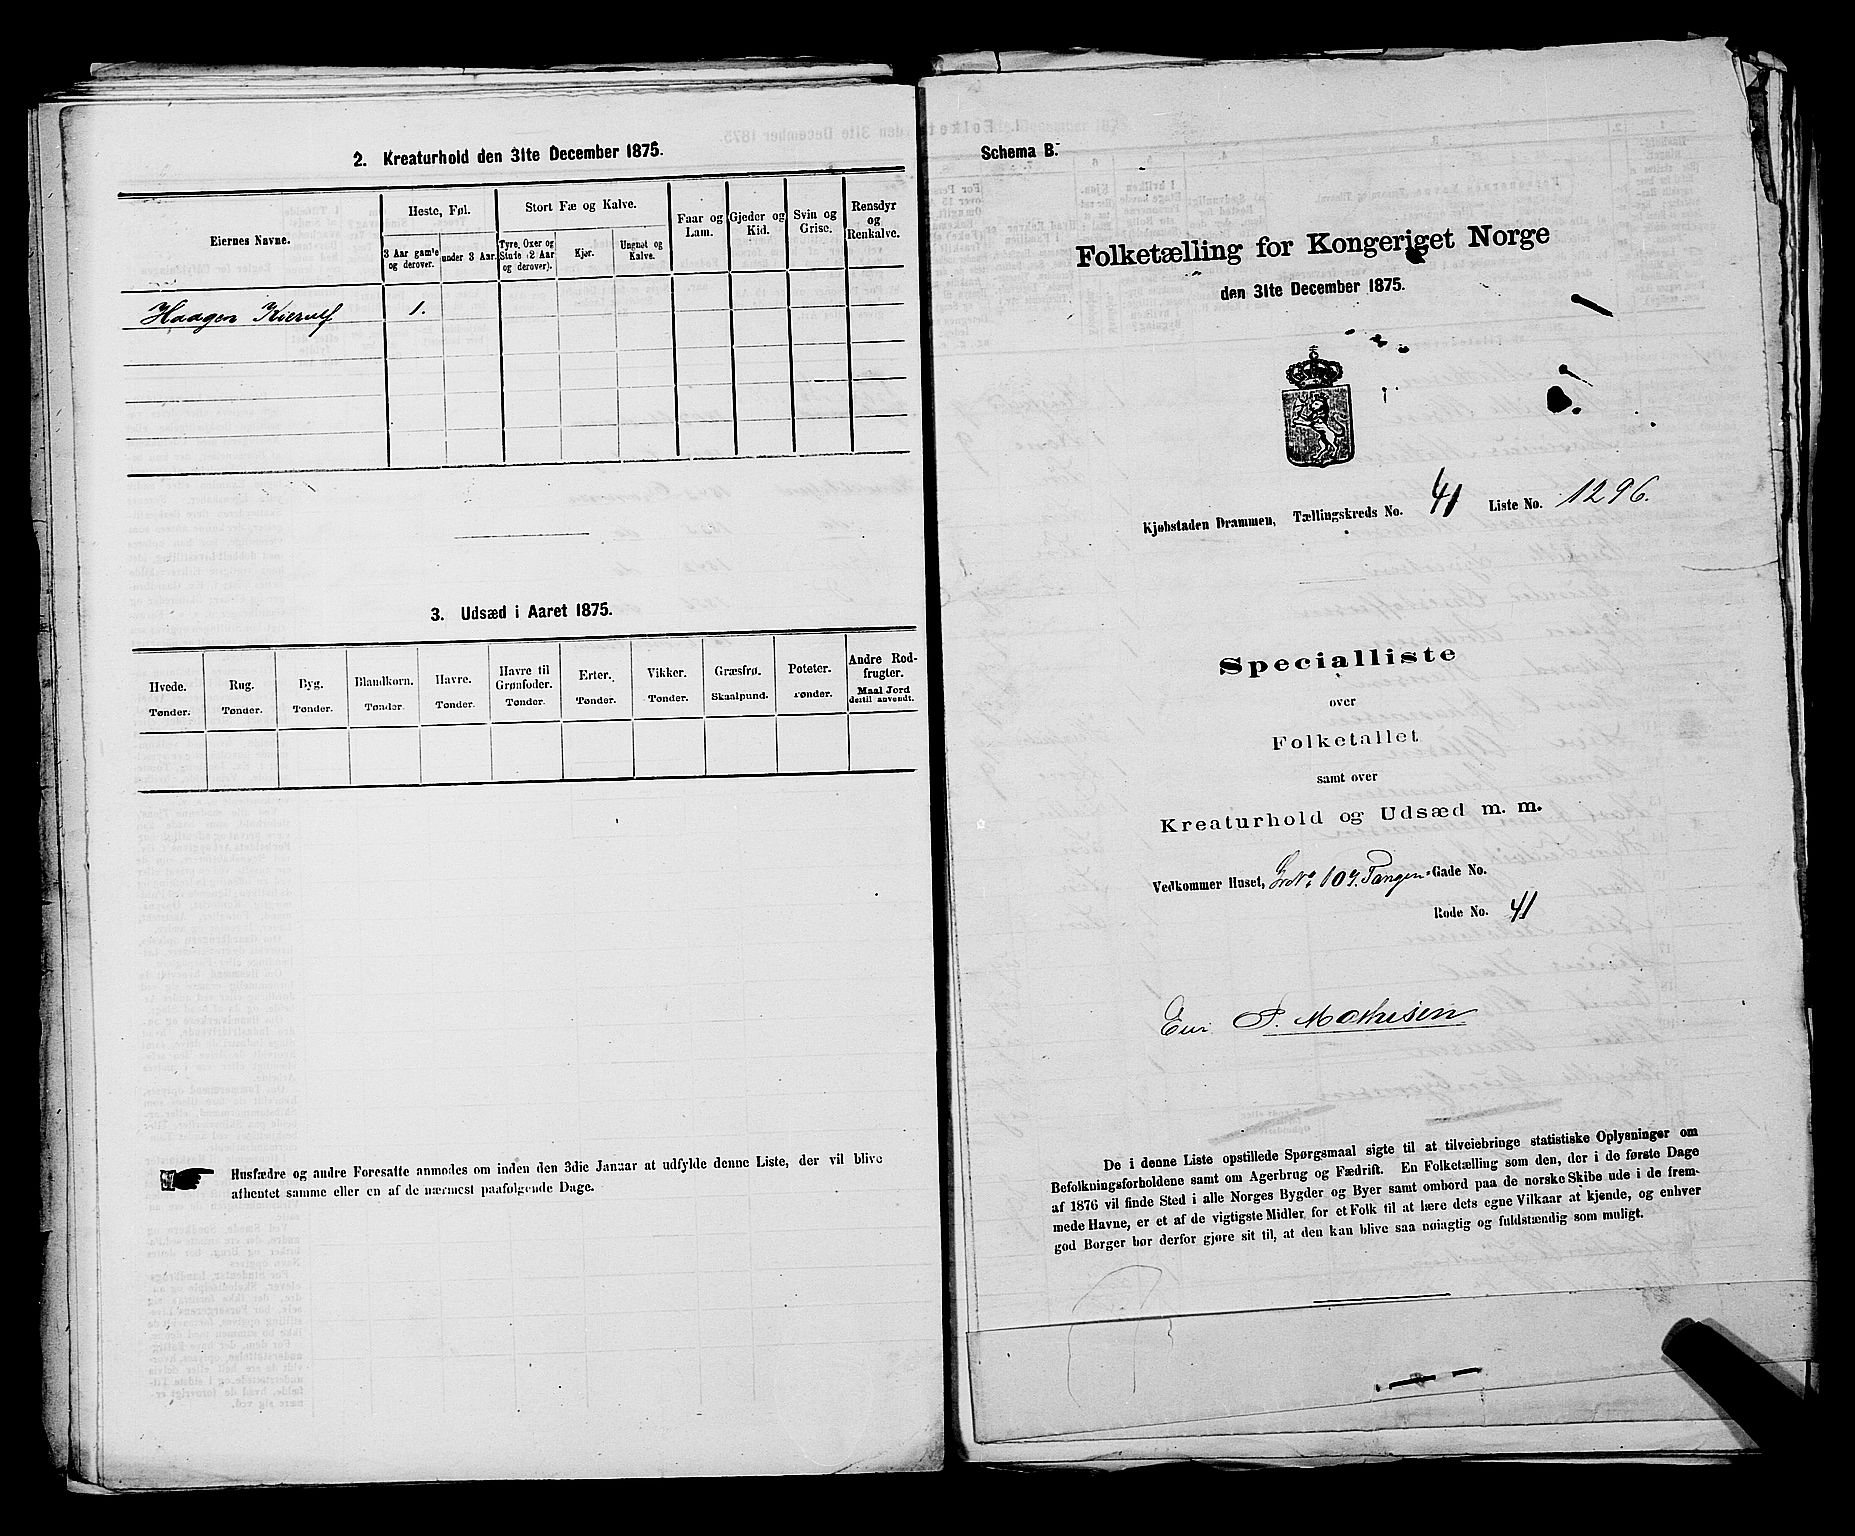 2. Kreaturhold den 31te December 1875.
Eiernes Navne.
Heste, Føl.
3 Aar gamle og derover.
under 3 Aar.
Stort Fæ og Kalve.
Tyre, Oxer og Stude (2 Aar og derover).
Kjør.
Ungnøt og Kalve.
Faar og Lam.
Gjeder og Kid.
Svin og Grise.
Rensdyr og Renkalve.
Haagen Kierulf 1.
3. Udsæd i Aaret 1875.
Hvede. Tønder.
Rug. Tønder.
Byg. Tønder.
Blandkorn. Tønder.
Havre. Tønder.
Havre til Grønfoder. Tønder.
Erter. Tønder.
Vikker. Tønder.
Græsfrø. Skaalpund.
Poteter. Tønder.
Andre Rodfrugter. Maal Jord dertil anvendt.
Husfædre og andre Foresatte anmodes om inden den 3die Januar at udfylde denne Liste, der vil blive
afhentet samme eller en af de nærmest paafølgende Dage.
Schema B.
Folketælling for Kongeriget Norge
den 31te December 1875.
Kjøbstaden Drammen, Tællingskreds No. 41 Liste No. 1296.
Specialliste
over
Folketallet
samt over
Kreaturhold og Udsæd m. m.
Vedkommer Huset, Tangen Gade No.
Rode No. 41
P. Mathisen
De i denne Liste opstillede Spørgsmaal sigte til at tilveiebringe statistiske Oplysninger om
Befolkningsforholdene samt om Agerbrug og Fædrift. En Folketælling som den, der i de første Dage
af 1876 vil finde Sted i alle Norges Bygder og Byer samt ombord paa de norske Skibe ude i de frem-
mede Havne, er et af de vigtigste Midler for et Folk til at lære dets egne Vilkaar at kjende, og enhver
god Borger bør derfor gjøre sit til, at den kan blive saa nøiagtig og fuldstændig som muligt.